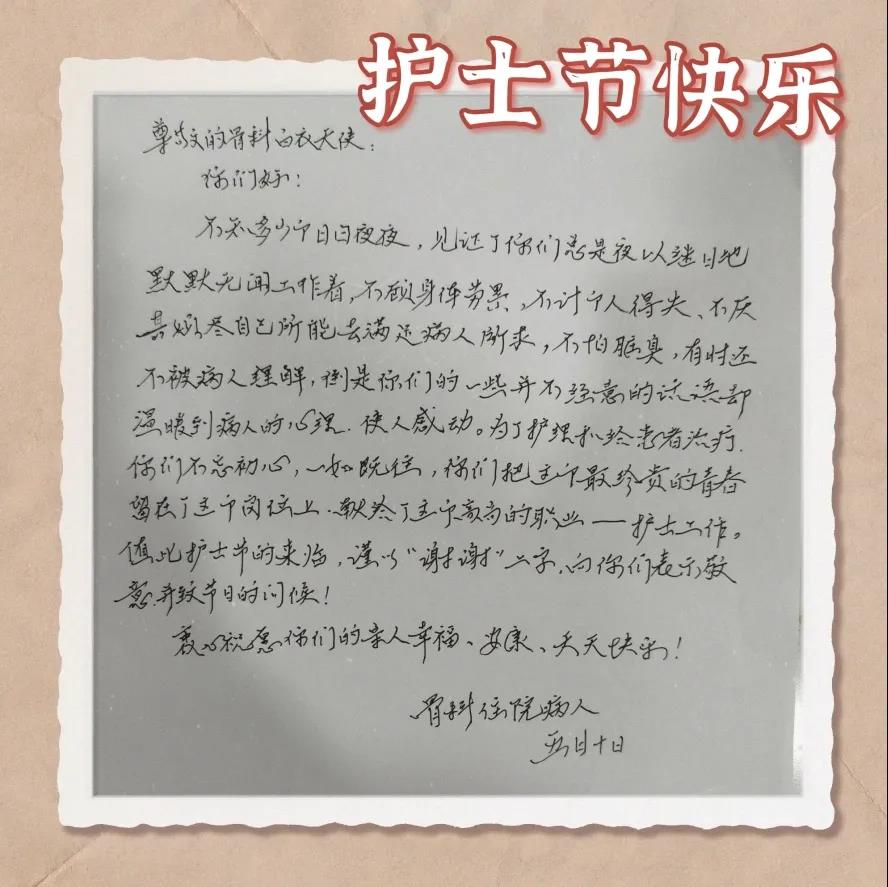 护士节快乐
尊敬的骨科白衣天使：
你们好：
不知多少个日日夜夜，见证了你们总是夜以继日地
默默无闻工作着，不顾身体劳累、不计个人得失、不厌
其烦尽自己所能去满足病人所求，不怕脏臭，有时还
不被病人理解，倒是你们的一些并不经意的话语却
温暖到病人的心理．使人感动。为了护理和给患者治疗．
你们不忘初心，一如既往，你们把这个最珍贵的青春
留在了这个岗位上．献给了这个高尚的职业——护士工作。
值此护士节的来临，谨以“谢谢”二字．向你们表示敬
意．并致节日的问候！
衷心祝愿你们的亲人幸福、安康、天天快乐！
骨科住院病人
五月十日